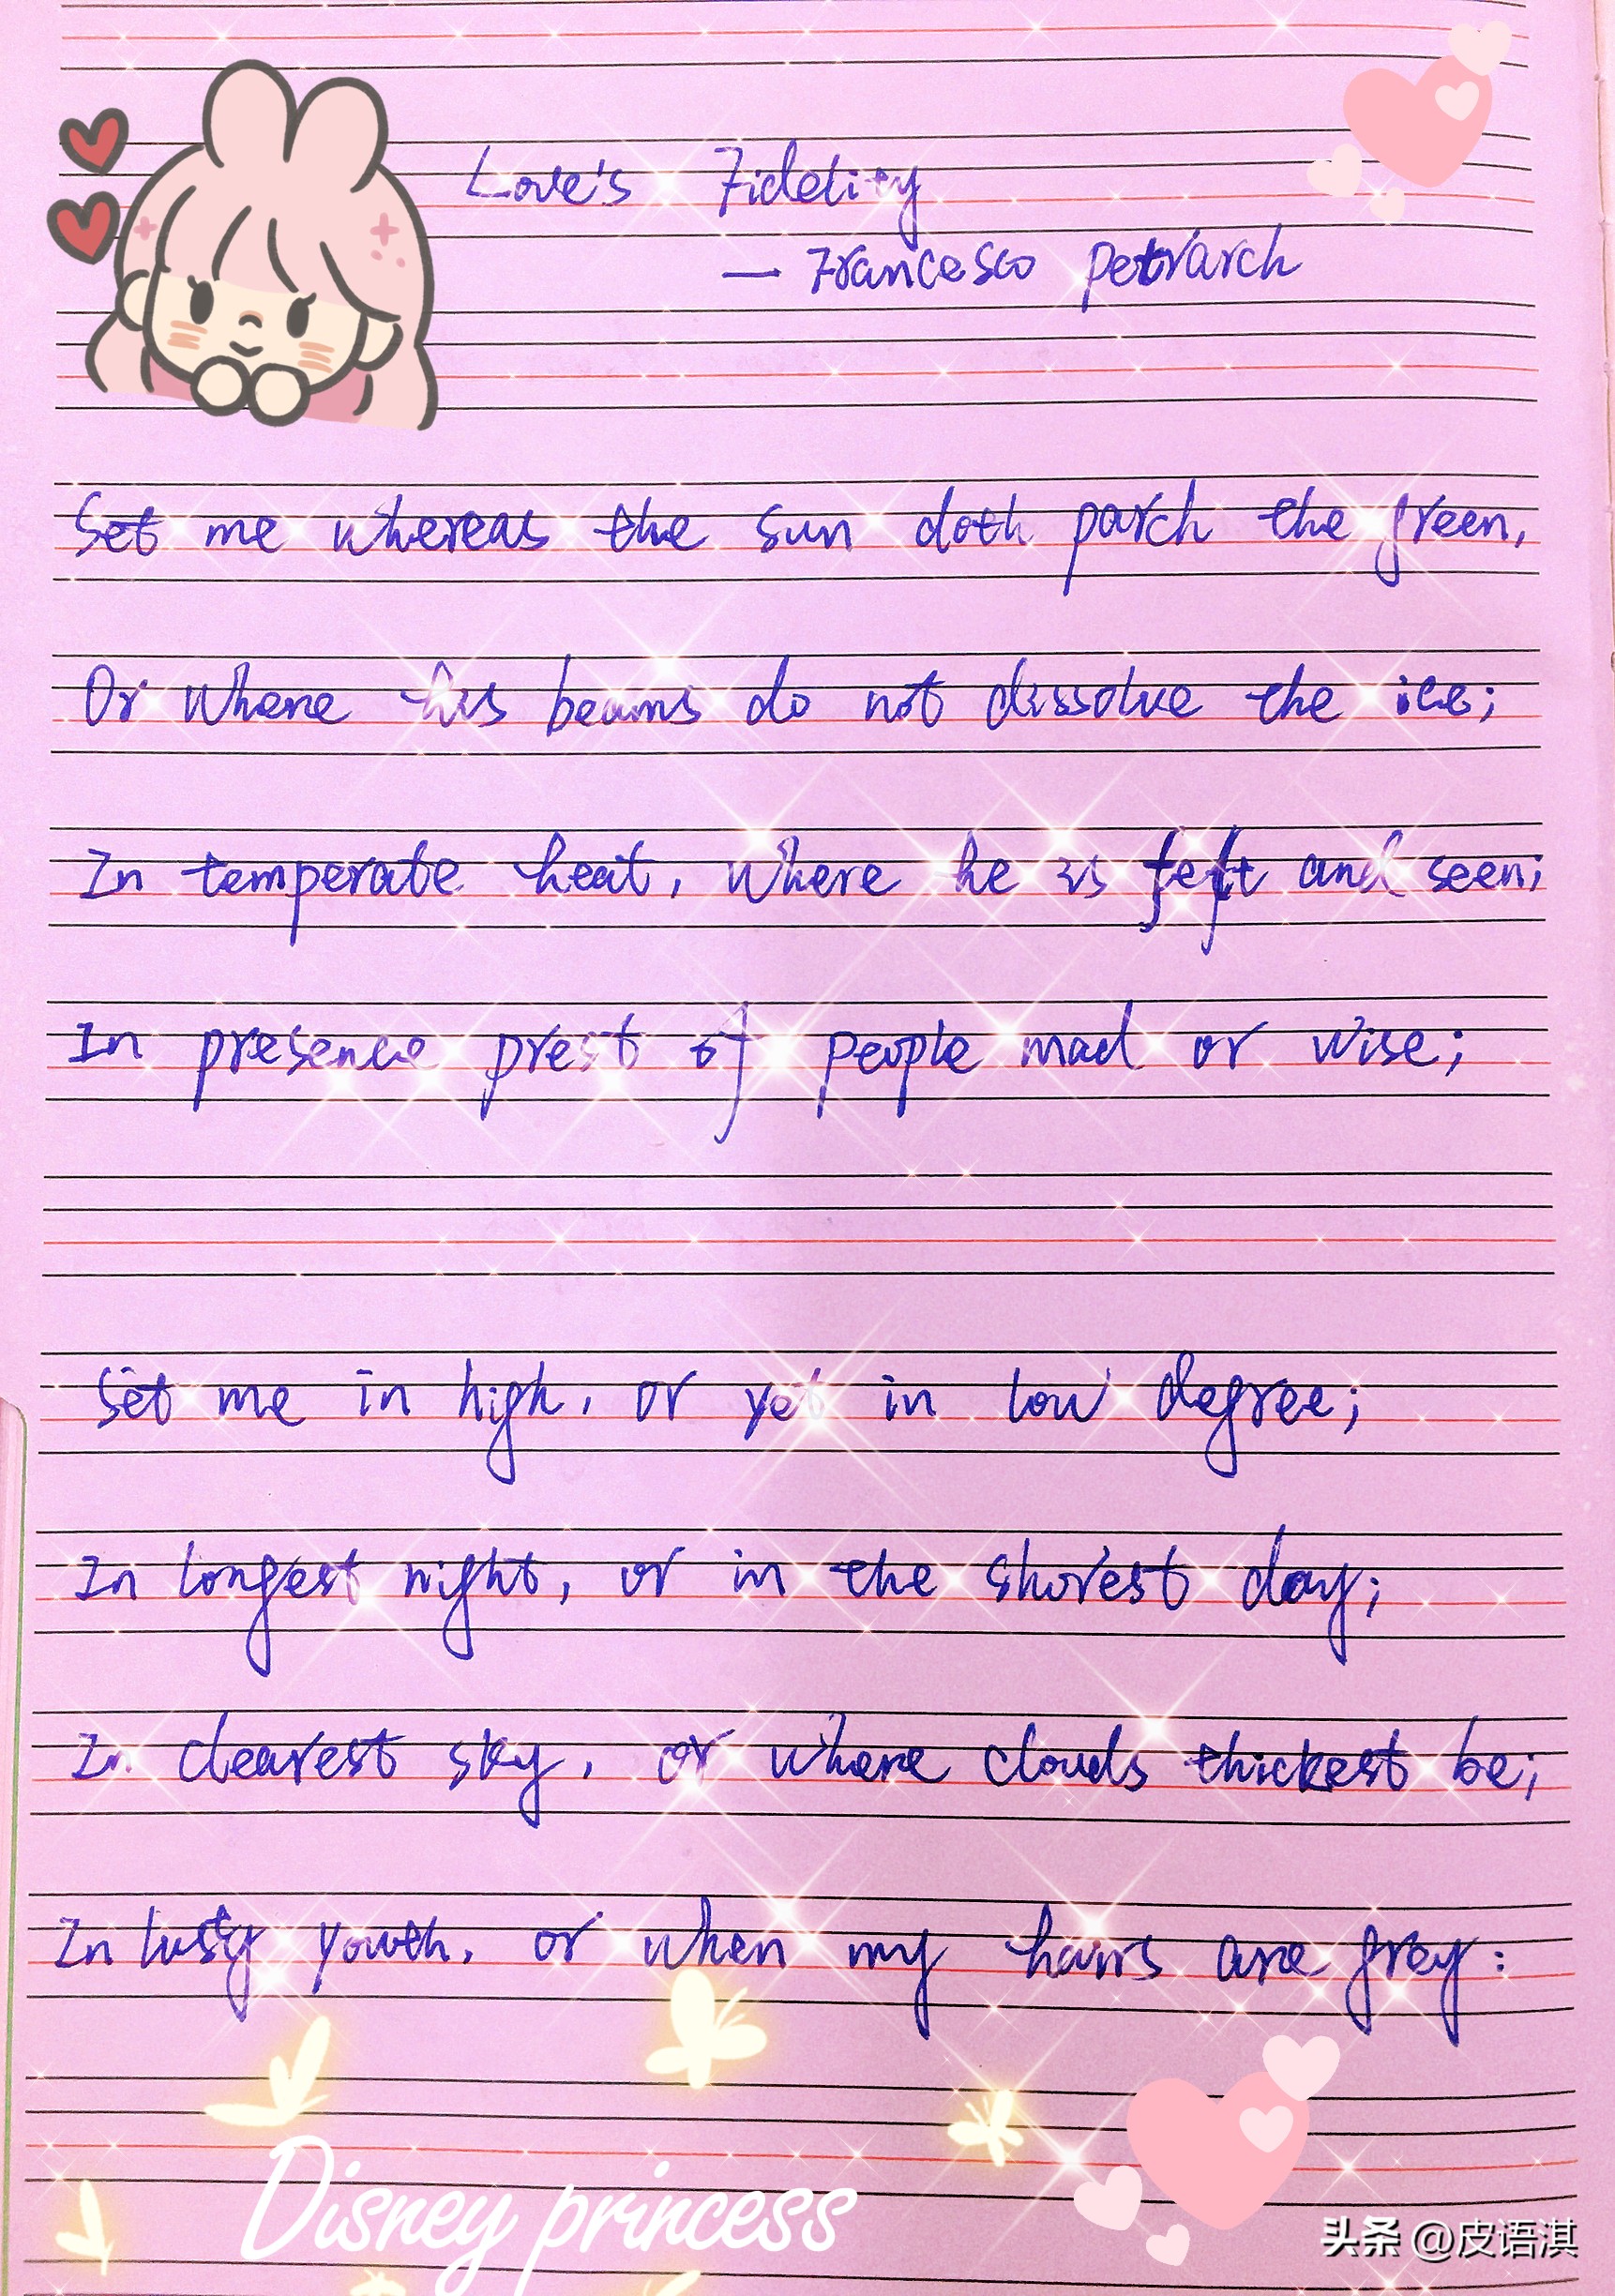 Love's Fidelity
— Francesco Petrarch
Set me whereas the sun doth parch the green,
Or where his beams do not dissolve the ice;
In temperate heat, where he is felt and seen;
In presence prest of people mad or wise;
Set me in high, or yet in low degree;
In longest night, or in the shorest day;
In clearest sky, or where clouds thickest be;
In lusty youth, or when my hairs are grey:
Disney princess
头条 @皮语淇